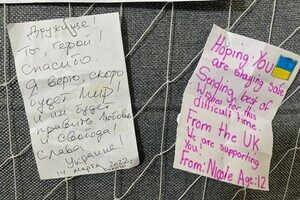 Дружище!
Ты, герой!
Спасибо.
Я верю, скоро
будет Мир!
и им будет
править Любовь
и Свобода!
Слава
Украине!
14 марта 2022г
Hoping You
are staying safe
Sending best of
Wishes for this
difficult time.
From the UK
We are supporting
You!
From: Nicole Age:12